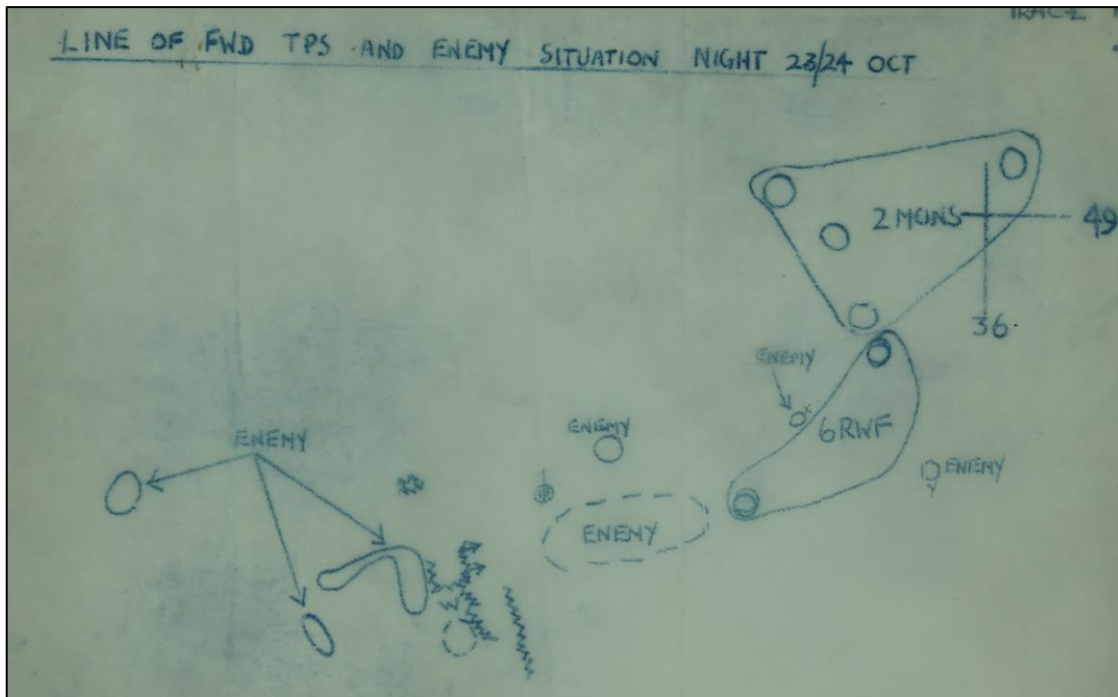 TRACE
LINE OF FWD TPS AND ENEMY SITUATION NIGHT 23/24 OCT
2 MONS
49
36
ENEMY
6RWF
ENEMY
ENEMY
ENEMY
ENEMY